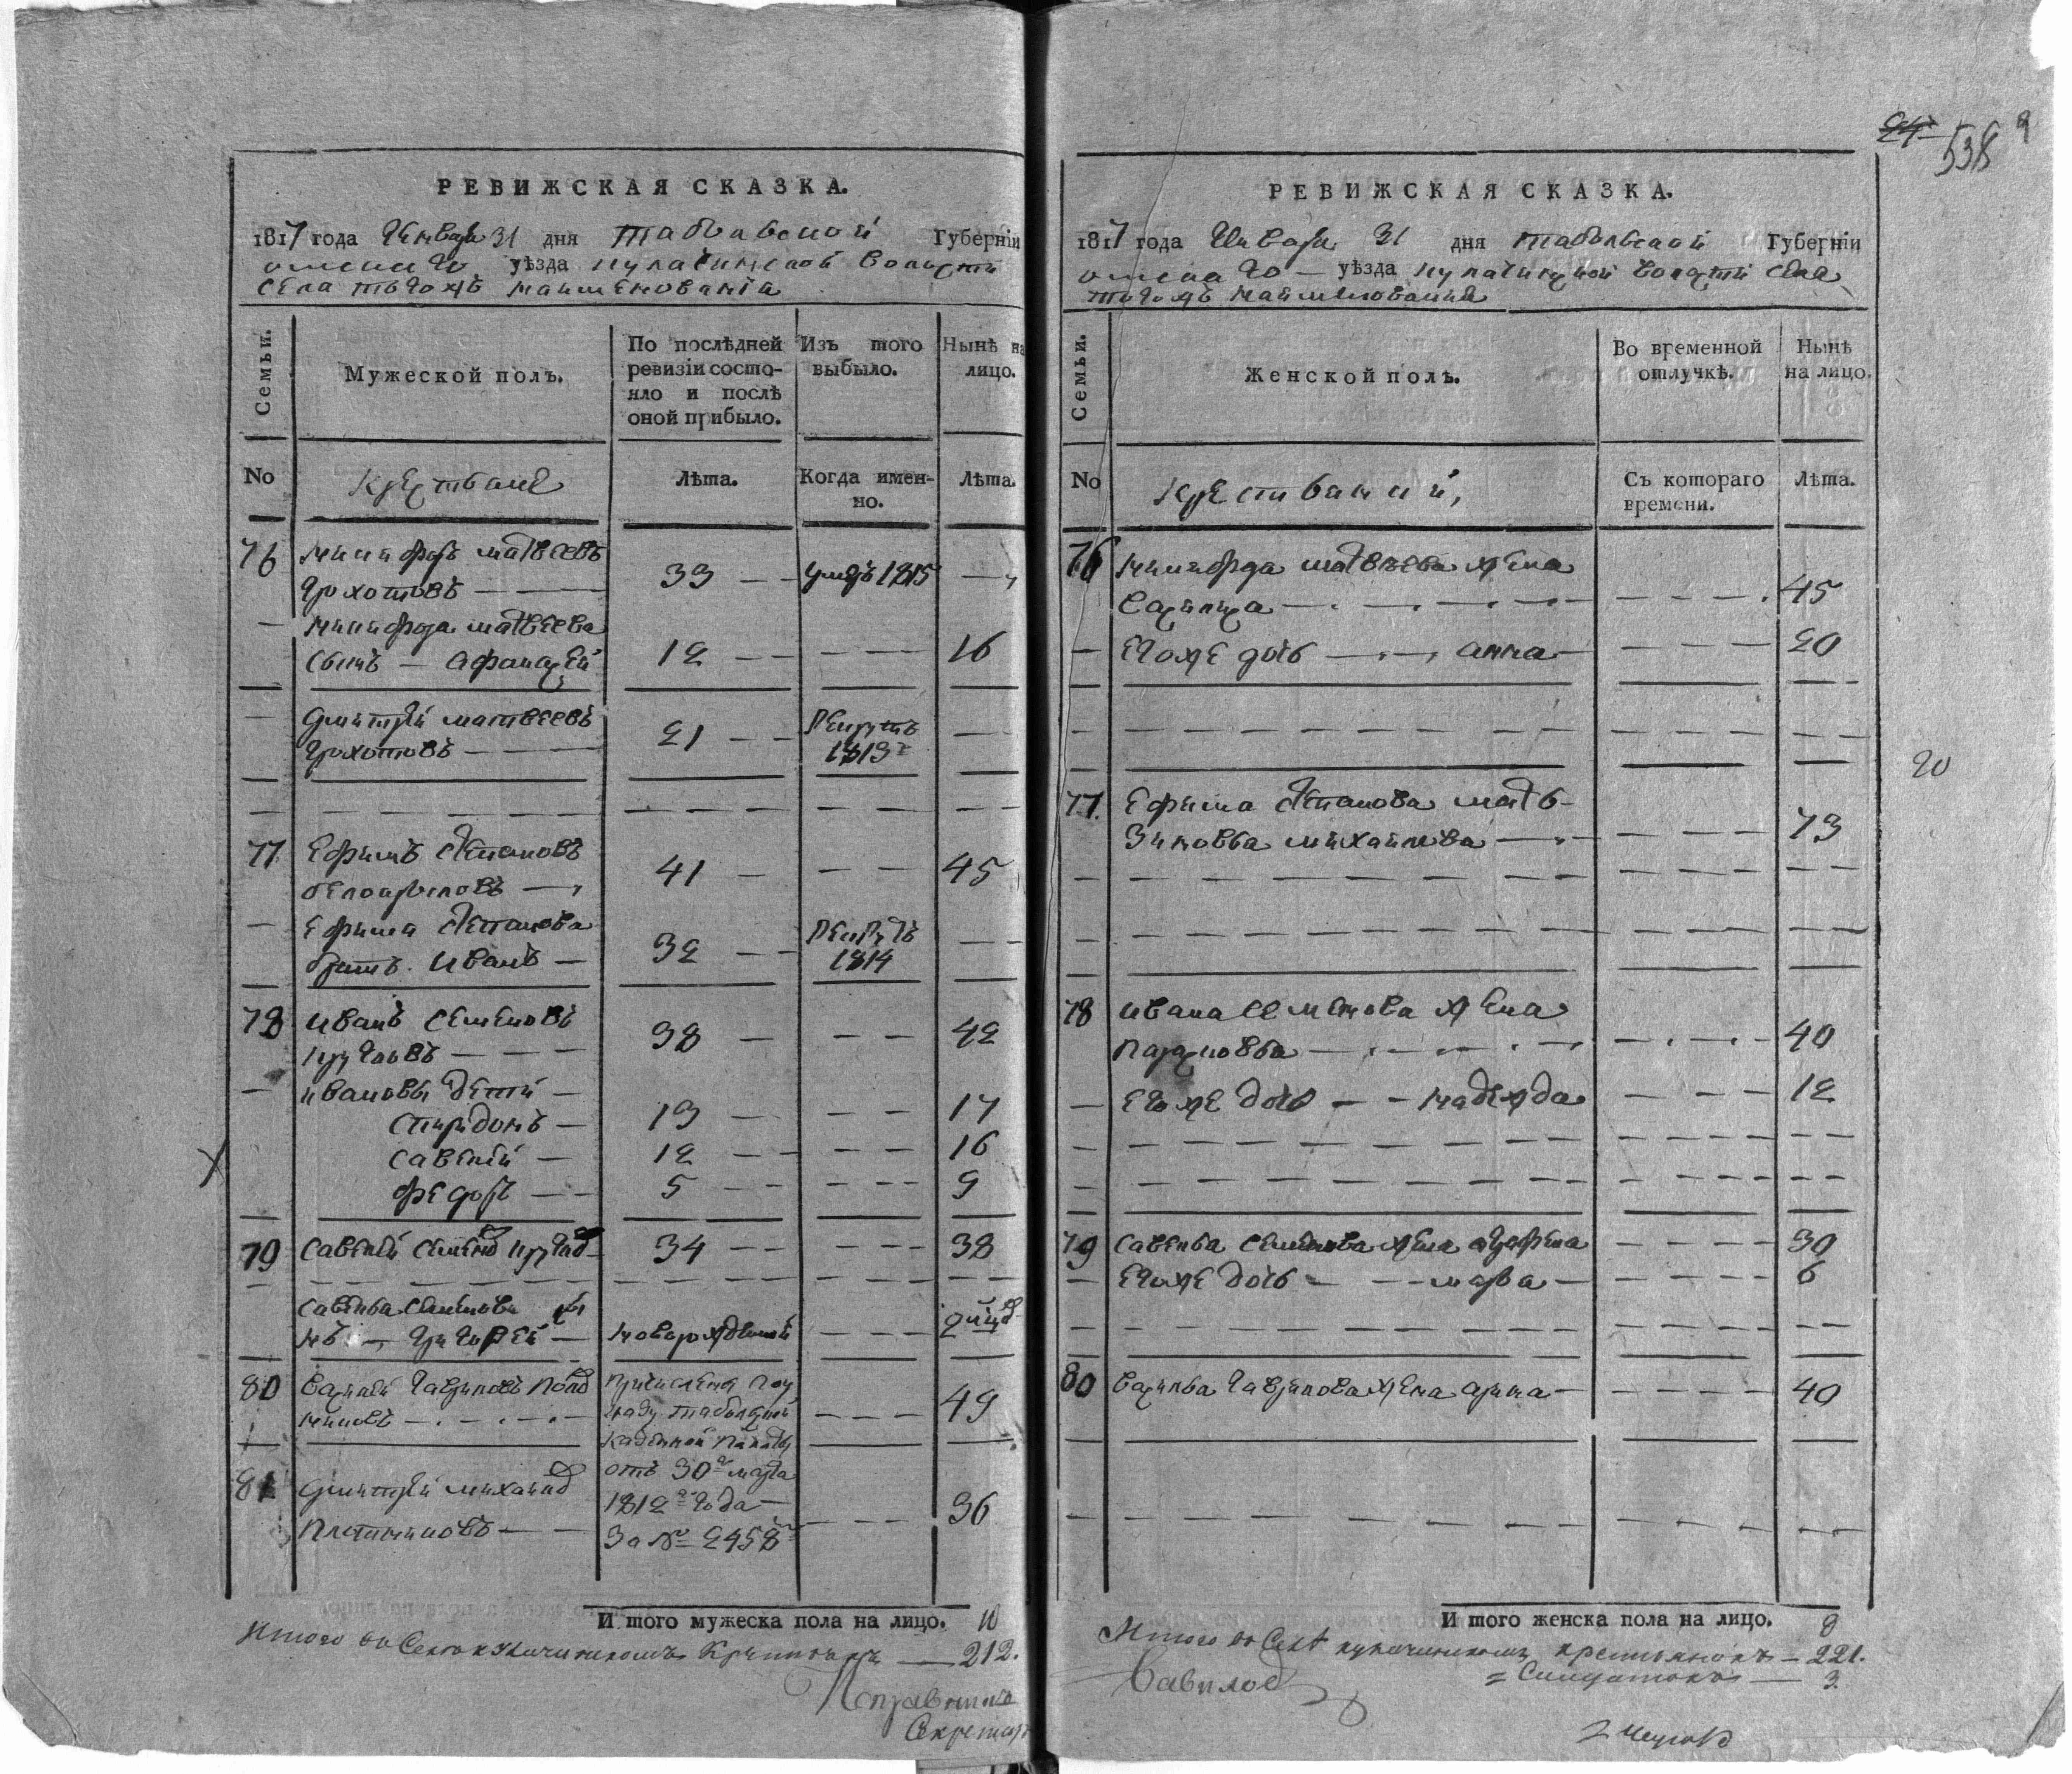 РЕВИЖСКАЯ СКАЗКА.
1817 года Генваря 31 дня Тобольской Губерніи
омскаго уѣзда кулачинской волости
села тогожъ наименованія
Семьи.
Мужеской полъ.
По послѣдней ревизіи состояло и послѣ оной прибыло.
Изъ того выбыло.
Ныне на лицо.
No
Крестьяне
Лѣта.
Когда именно.
Лѣта.
76 Никифоръ матвеевъ
Грохотовъ — 39 — умеръ 1815 —
Никифора матвеева
сынъ — Афанасей 12 — — 16
Дмитрей матвеевъ
Грохотовъ — 21 — рекрутъ 1813 г —
77 Ефимъ степановъ
белокрыловъ — 41 — — 45
Ефима степанова
братъ Иванъ — 32 — рекрутъ 1814 —
78 Иванъ семеновъ
— 38 — — 42
ивановы дети —
спиридонъ — 13 — — 17
савелей — 12 — — 16
федоръ — 5 — — 9
79 Савелей семенов — 34 — — 38
савелья семенова сы
нъ — григорей — новорожденной — 2
80 Василей гавриловъ — 49
причисленъ по ука
зу тобольской
казенной палаты
отъ 30 г марта
1812 го года —
за № 2458
81 Дмитрей михайлов
— 36
И того мужеска пола на лицо. 10
Итого во селе кулачинскомъ крестьянъ — 212.
Секретарь
538
РЕВИЖСКАЯ СКАЗКА.
1817 года Генваря 31 дня тобольской Губерніи
омскаго — уѣзда кулачинской волости села
тогожъ наименованія
Семьи.
Женской полъ.
Во временной отлучкѣ.
Нынѣ на лицо.
No
Крестьянки,
Съ котораго времени.
Лѣта.
76 никифора матвеева жена
— 45
егоже дочь — анна — 20
20
77. Ефима степанова мать
Зиновья михайлева — 73
78 ивана семенова жена
парасковья — 40
егоже дочь — надежда — 12
79 савелья семенова жена — 30
егоже дочь — марва — 6
80 василья гаврилова жена арина — 40
И того женска пола на лицо. 9
Итого во селе кулачинскомъ крестьянокъ — 221.
= Солдатокъ — 3.